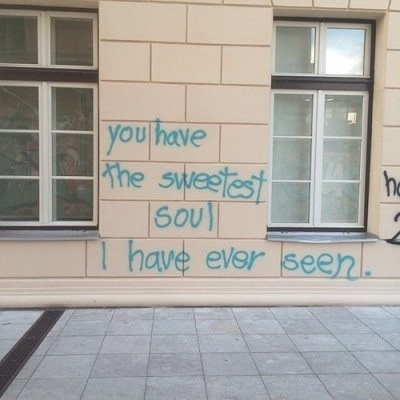 you have
the sweetest
soul
I have ever seen.